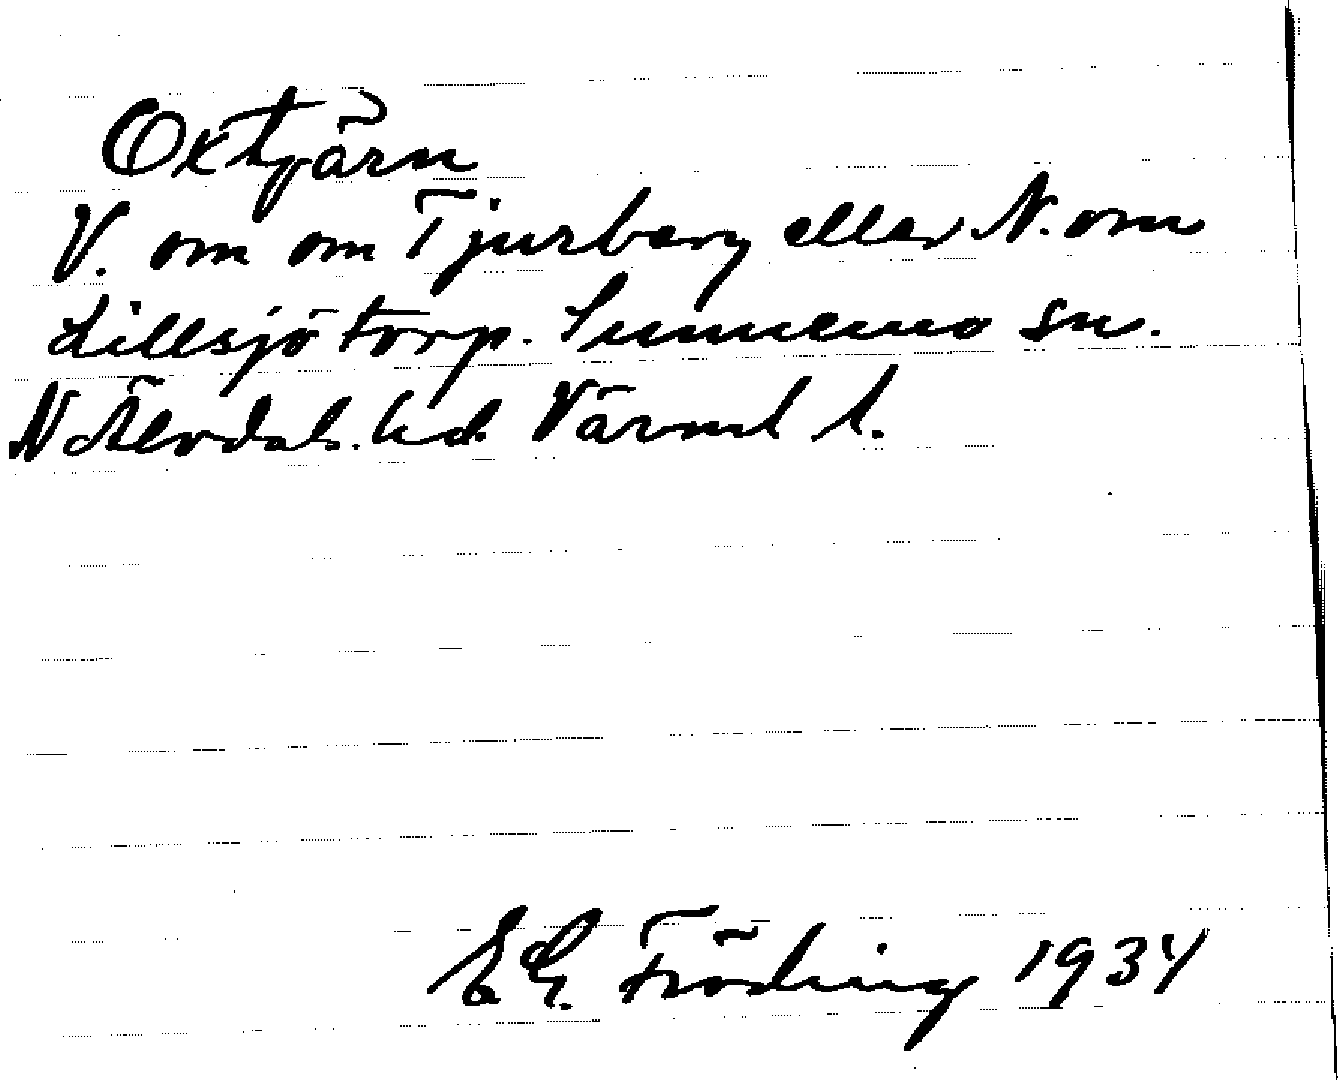 Oxtjärn
V. om om Tjurberg eller N. om
Lillsjötorp. Sunnemo sn.
N Älvdals. hd. Värml l.
E G. Fröding 1934